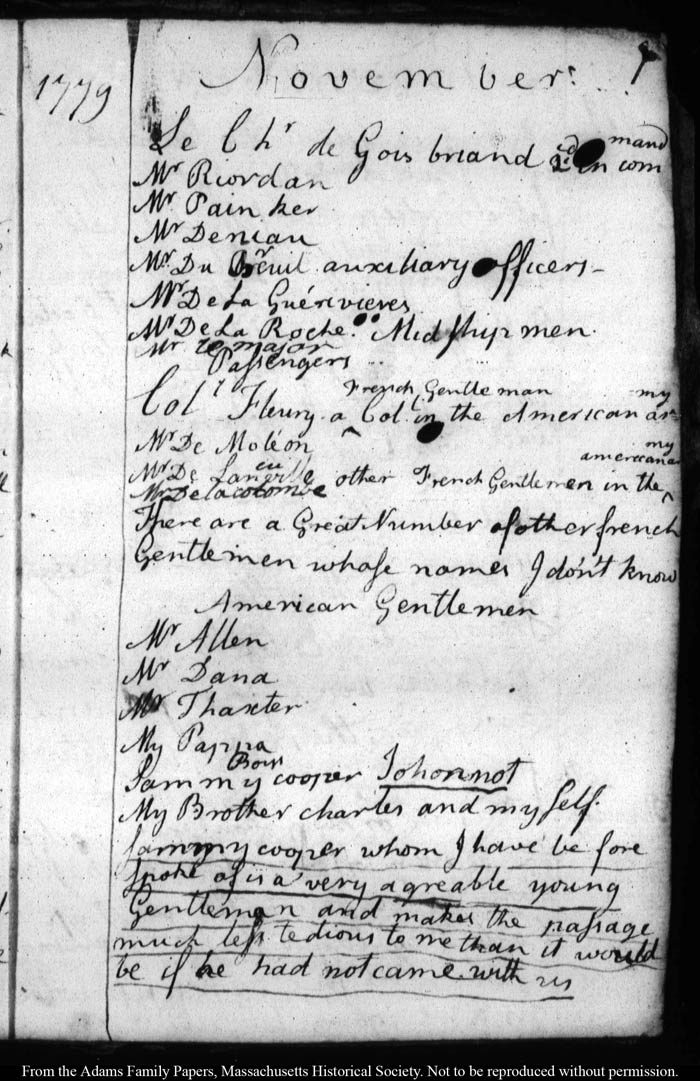 1779
Novembers
Le Chr de Goisbriand 2d in command
Mr Riordan
Mr Painker
Mr Deniau
Mr Du Breuil auxiliary officers
Mr De La Guérivieres
Mr De La Roche Midshipmen
Mr le major
Passengers
Coll Fleury a French Gentleman Col: in the American army
Mr De Moléon
Mr De Laneuville other French Gentlemen in the american army
Mr De la colombe
There are a Great Number of other french
Gentlemen whose names I don't know
American Gentlemen
Mr Allen
Mr Dana
Mr Thaxter
My Pappa
Boys
Sammy cooper Johonnot
My Brother charles and my self.
Sammy cooper whom I have before
spoke of is a very agreable young
Gentleman and makes the passage
much less tedious to me than it would
be if he had not came with us
From the Adams Family Papers, Massachusetts Historical Society. Not to be reproduced without permission.